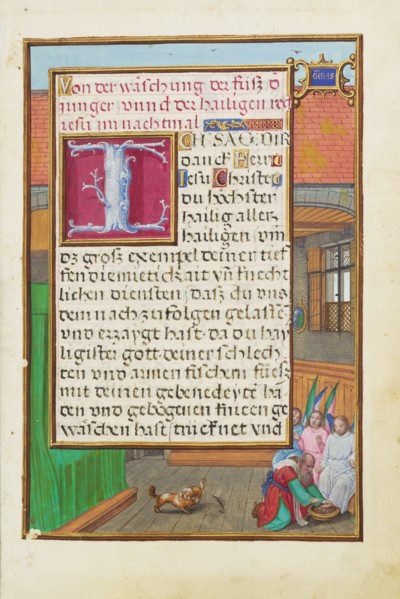 GEN·18·
Von der wäschung der füsz d
junger vund der hailigen red
iesu im nachtmal
ICH SAG DIR
danck Herr
Jesu Christe
du höchster
hailig aller
hailigen vm̄
dz grosz exempel deiner tief
fen diemietickait vn̄ knecht
lichen diensten, dasz du vns
dem nach zufolgen gelassen
vnd erzaygt hast. da du hay
ligister gott deiner schlech
ten vnd armen fischern füesz
mit deinen gebenedeytē hā
den vnd gebognen knieen ge
wäschen hast, trucknet vnd